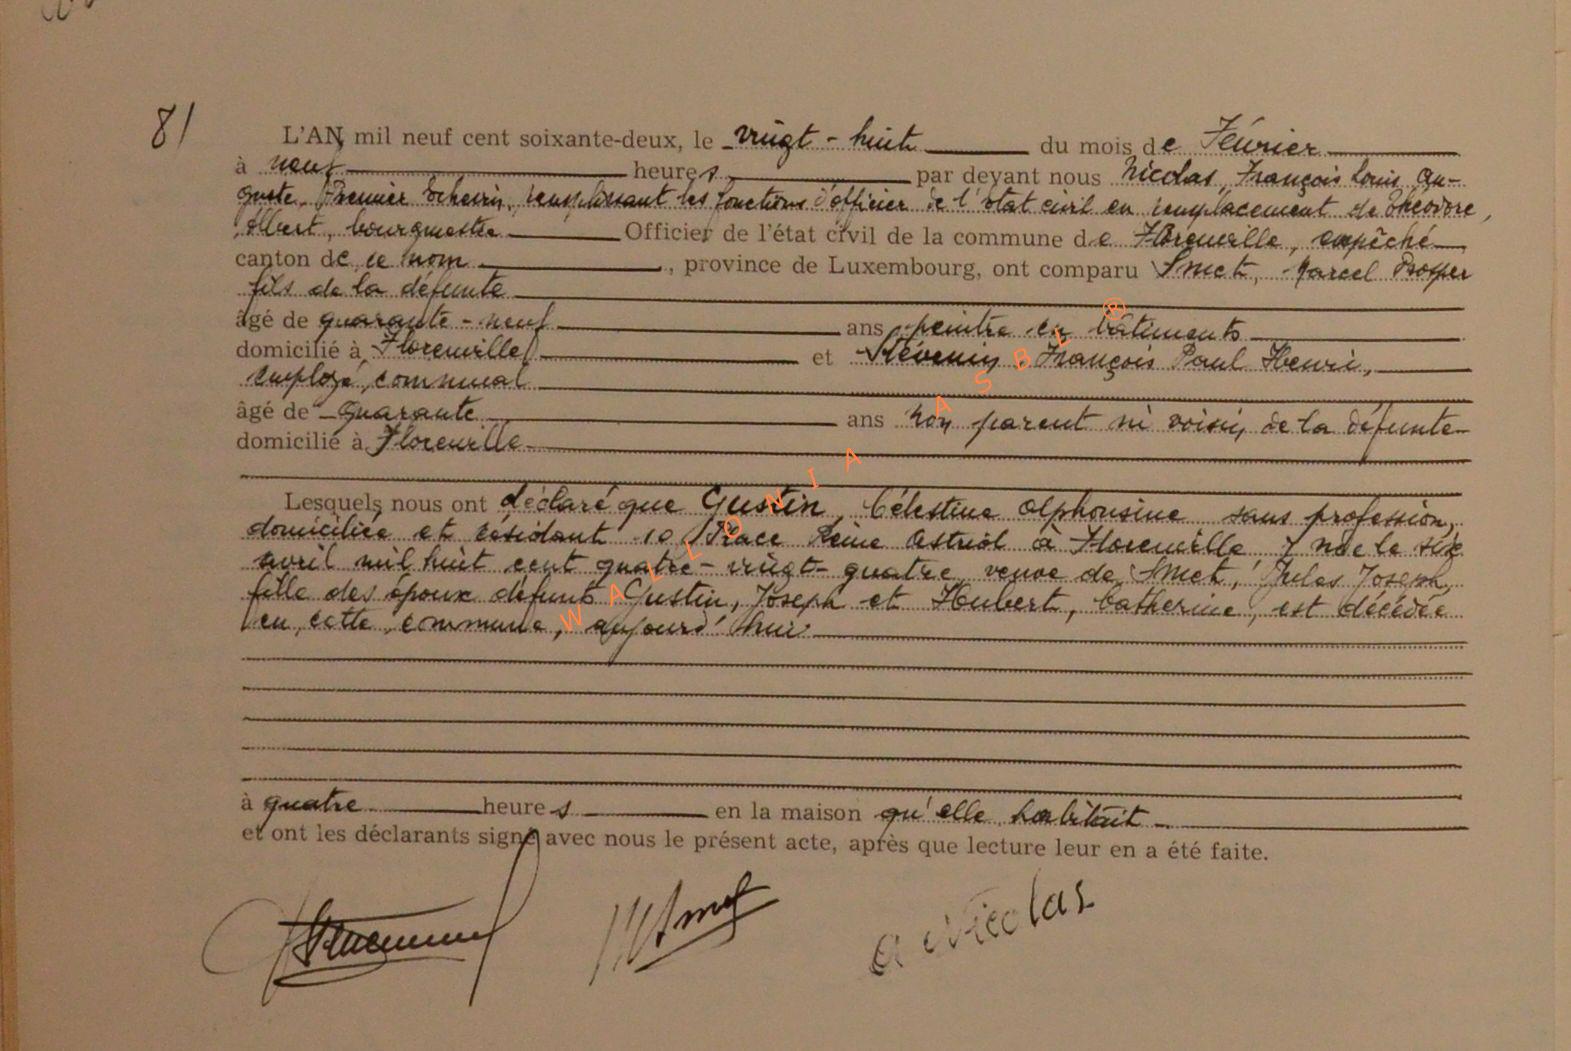 81
L'AN mil neuf cent soixante-deux, le vingt-huit du mois de Février
à neuf heures par devant nous Nicolas, François Louis Au-
guste, Premier Echevin, remplissant les fonctions d'officier de l'état civil en remplacement de Théodore,
Albert, bourgmestre Officier de l'état civil de la commune de Florenville, empêché
canton de ce nom, province de Luxembourg, ont comparu Smet, Marcel Prosper
fils de la défunte
âgé de quarante-neuf ans peintre en bâtiments
domicilié à Florenville et Stévenin François Paul Henri,
employé communal
âgé de quarante ans non parent ni voisin de la défunte
domicilié à Florenville
Lesquels nous ont déclaré que Gustin, Célestine Alphonsine sans profession,
domiciliée et résidant 10 Place Reine Astrid à Florenville, née le six
avril mil huit cent quatre-vingt-quatre, veuve de Smet, Jules Joseph,
fille des époux défunt Gustin, Joseph et Hubert, Catherine, est décédée
en cette commune, aujourd'hui
à quatre heures en la maison qu'elle habitait
et ont les déclarants signé avec nous le présent acte, après que lecture leur en a été faite.
Smet
A Nicolas
WALLONIA ASBL ®